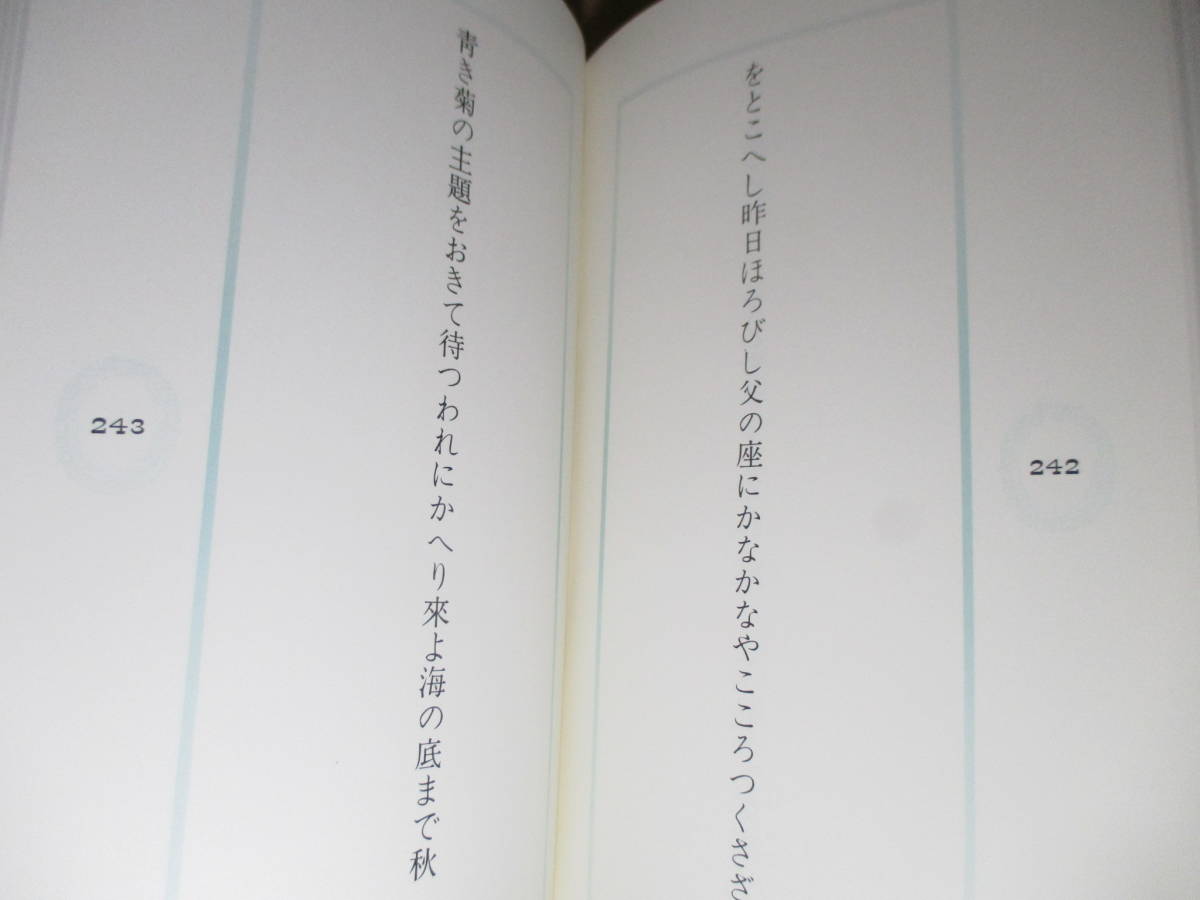 をとこへし昨日ほろびし父の座にかなかなやこころつくさざ
242
靑き菊の主題をおきて待つわれにかへり來よ海の底まで秋
243